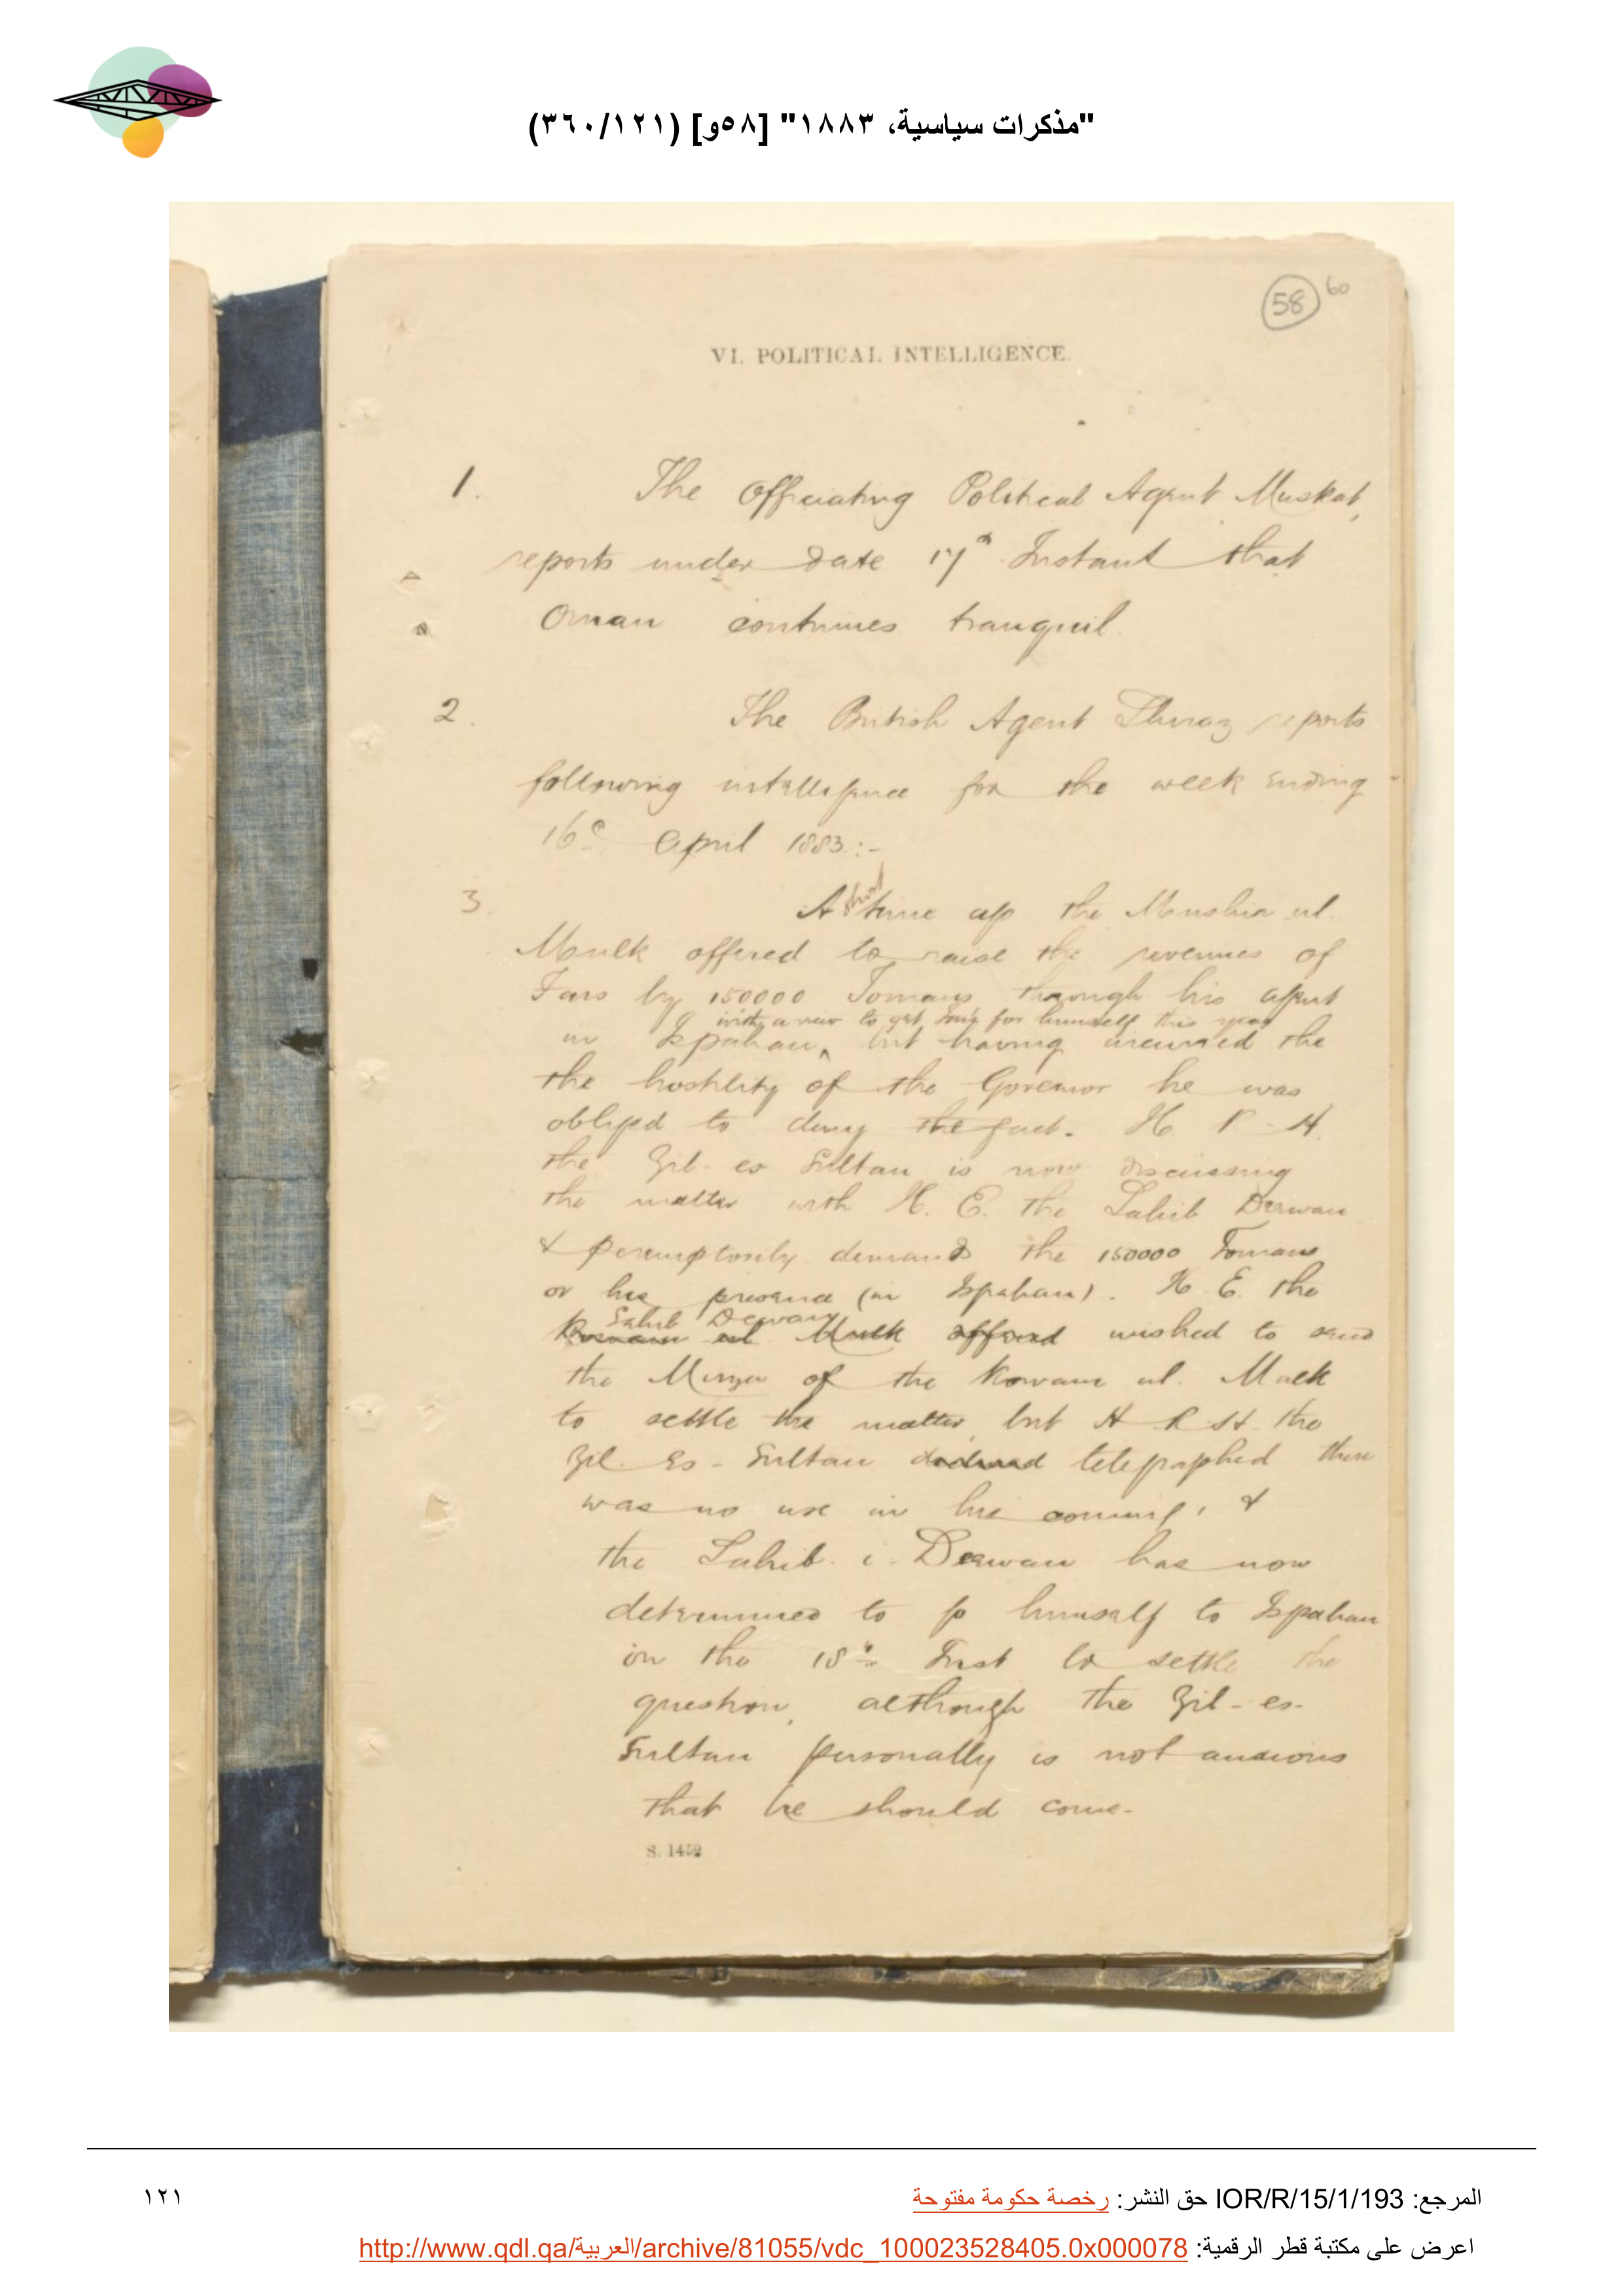 "مذكرات سياسية، ١٨٨٣" [٥٨و] (٣٦٠/١٢١)
58 60
VI. POLITICAL INTELLIGENCE.
1. The Officiating Political Agent Muskat,
reports under date 17th Instant that
Oman continues tranquil.
2. The British Agent Shiraz reports
following intelligence for the week ending
16th April 1883:-
3. A short time ago the Mushir ul.
Moulk offered to raise the revenues of
Fars by 150000 Tomans through his agent
with a view to get Govt for himself this year
in Ispahan, but having incurred the
the hostility of the Governor he was
obliged to deny the fact. H. R. H.
the Zil-es Sultan is now discussing
the matter with H. E. the Sahib Dewan
& peremptorily demands the 150000 Tomans
or his presence (in Ispahan). H. E. the
Sahib Dewan
Kowam ul Mulk offered wished to send
the Mirza of the Kowam ul. Mulk
to settle the matter, but H R H. the
Zil. Es-Sultan telegraphed there
was no use in his coming, &
the Sahib. i. Dewan has now
determined to go himself to Ispahan
on the 18th Inst to settle the
question, although the Zil-es-
Sultan personally is not anxious
that he should come.
S. 1452
المرجع: IOR/R/15/1/193 حق النشر: رخصة حكومة مفتوحة
١٢١
اعرض على مكتبة قطر الرقمية: http://www.qdl.qa/العربية/archive/81055/vdc_100023528405.0x000078